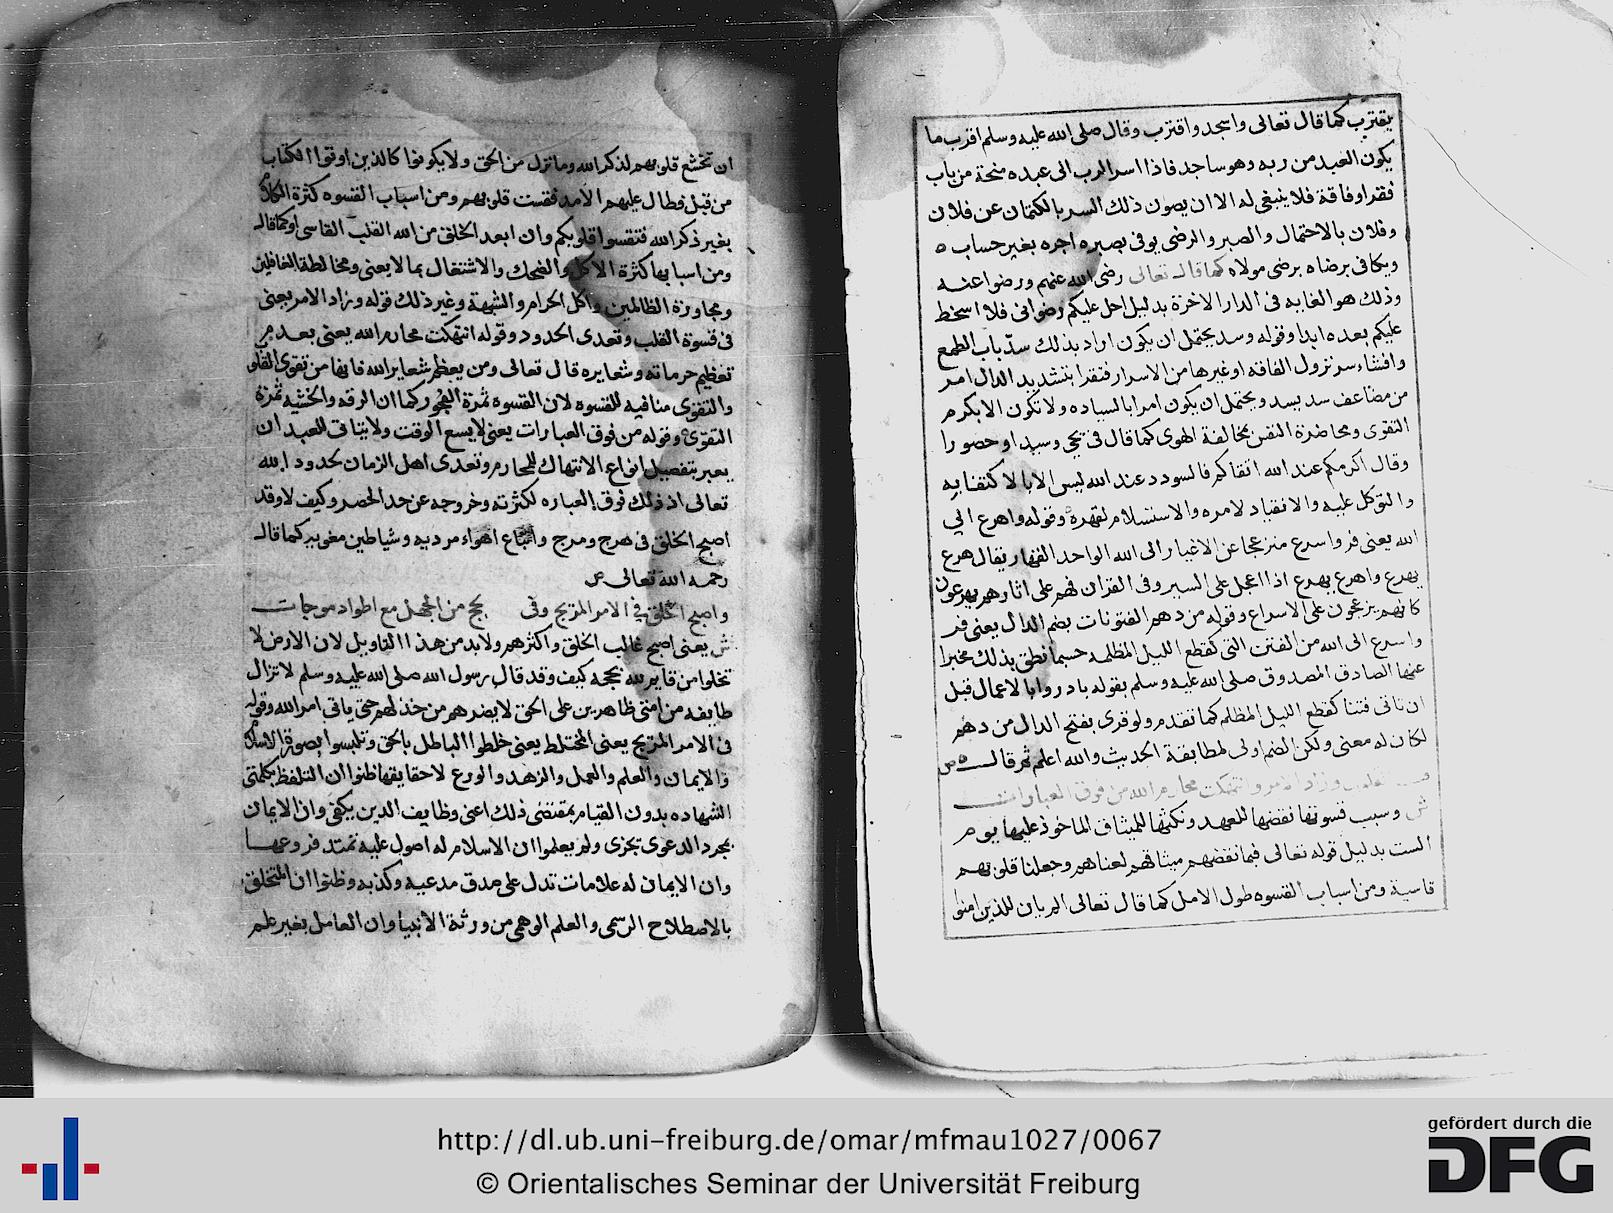 يقترب كما قال تعالى واسجد واقترب وقال صلى الله عليه وسلم اقرب ما
يكون العبد من ربه وهو ساجد فاذا اسر الرب الى عبده منحة من باب
فقر او فاقة فلا ينبغي له الا ان يصون ذلك السر بالكتمان عن فلان
وفلان بالاحتمال والصبر والرضى يوفى بصبره اجره بغير حساب ه
ويكافى برضاه برضى مولاه كما قال تعالى رضي الله عنهم ورضوا عنه
وذلك هو الغايه فى الدار الاخرة بدليل احل عليكم رضوانى فلا اسخط
عليكم بعده ابدا وقوله وسد يحتمل ان يكون اراد بذلك سدّ باب الطمع
وافشاء سر نزول الفاقه او غيرها من الاسرار فتقرا بتشديد الدال امر
من مضاعف سد يسد ويحتمل ان يكون امرا بالسياده ولا تكون الا بكرم
التقوى ومحاضرة النفس بمخالفة الهوى كما قال فى يحيى وسيدا وحصورا
وقال اكرمكم عند الله اتقاكم فالسودد عند الله ليس الا بالاكتفا به
والتوكل عليه والانقياد لامره والاستسلام لقهره وقوله واهرع الي
الله يعنى فر واسرع منزعجا عن الاغيار الى الله الواحد القهار يقال هرع
يهرع واهرع يهرع اذا اعجل على السير وفى القران فهم على اثارهم يهرعون
كانهم يزعجون على الاسراع وقوله من دهم الفتونات بضم الدال يعنى فر
واسرع الى الله من الفتن التى كقطع الليل المظلمه حسبما نطق بذلك مخبرا
عنها الصادق المصدوق صلى الله عليه وسلم بقوله بادروا بالاعمال قبل
ان تاتى فتنا كقطع الليل المظلم كما تقدم ولو قرى بفتح الدال من دهم
لكان له معنى ولكن الضم اولى لمطابقة الحديث والله اعلم ثم قال ه ص
وزاد الامر وانتهكت محارم الله من فوق العبارات
ش وسبب قسوتها نقضها للعهد ونكثها للميثاق الماخوذ عليها يوم
الست بدليل قوله تعالى فبما نقضهم ميثاقهم لعناهم وجعلنا قلوبهم
قاسية ومن اسباب القسوه طول الامل كما قال تعالى الم يان للذين امنوا
ان تخشع قلوبهم لذكر الله وما نزل من الحق ولا يكونوا كالذين اوتوا الكتاب
من قبل فطال عليهم الامد فقست قلوبهم ومن اسباب القسوه كثرة الكلام
بغير ذكر الله فتقسوا قلوبكم وان ابعد الخلق من الله القلب القاسى او كما قال
ومن اسبابها كثرة الاكل والضحك والاشتغال بما لا يعنى ومخالطة الغافلين
ومجاورة الظالمين واكل الحرام والشبهة وغير ذلك قوله وزاد الامر يعنى
فى قسوة القلب وتعدى الحدود وقوله انتهكت محارم الله يعنى بعدم
تعظيم حرماته وشعايره قال تعالى ومن يعظم شعاير الله فانها من تقوى القلوب
والتقوى منافيه للقسوه لان القسوه ثمرة الفجور كما ان الرقه والخشيه ثمرة
التقوى وقوله من فوق العبارات يعنى لا يسع الوقت ولا يتاتى للعبد ان
يعبر بتفصيل انواع الانتهاك للمحارم وتعدى اهل الزمان لحدود الله
تعالى اذ ذلك فوق العباره لكثرته وخروجه عن حد الحصر وكيف لا وقد
اصبح الخلق فى هرج ومرج واتباع اهواء مرديه وشياطين مغويه كما قال
رحمه الله تعالى ص
واصبح الخلق في الامر المريج وفى لجج من الجهل مع اطواد موجات
ش يعنى اصبح غالب الخلق واكثرهم ولا بد من هذا التاويل لان الارض لا
تخلوا من قايم لله بحجه كيف وقد قال رسول الله صلى الله عليه وسلم لا تزال
طايفه من امتى ظاهرين على الحق لا يضرهم من خذلهم حتى ياتى امر الله وقوله
فى الامر المريج يعنى المختلط يعنى خلطوا الباطل بالحق وتلبسوا بصورة الاسلام
والايمان والعلم والعمل والزهد والورع لا حقايقها ظنوا ان التلفظ بكلمتى
الشهاده بدون القيام بمقتضى ذلك اعنى وظايف الدين يكفى وان الايمان
بمجرد الدعوى تجزى ولم يعلموا ان الاسلام له اصول عليه تمتد فروعها
وان الايمان له علامات تدل على صدق مدعيه وكذبه وظنوا ان المتخلق
بالاصطلاح الرسمى والعلم الوهمى من ورثة الانبيا وان العامل بغير علم
http://dl.ub.uni-freiburg.de/omar/mfmau1027/0067
© Orientalisches Seminar der Universität Freiburg
gefördert durch die
DFG